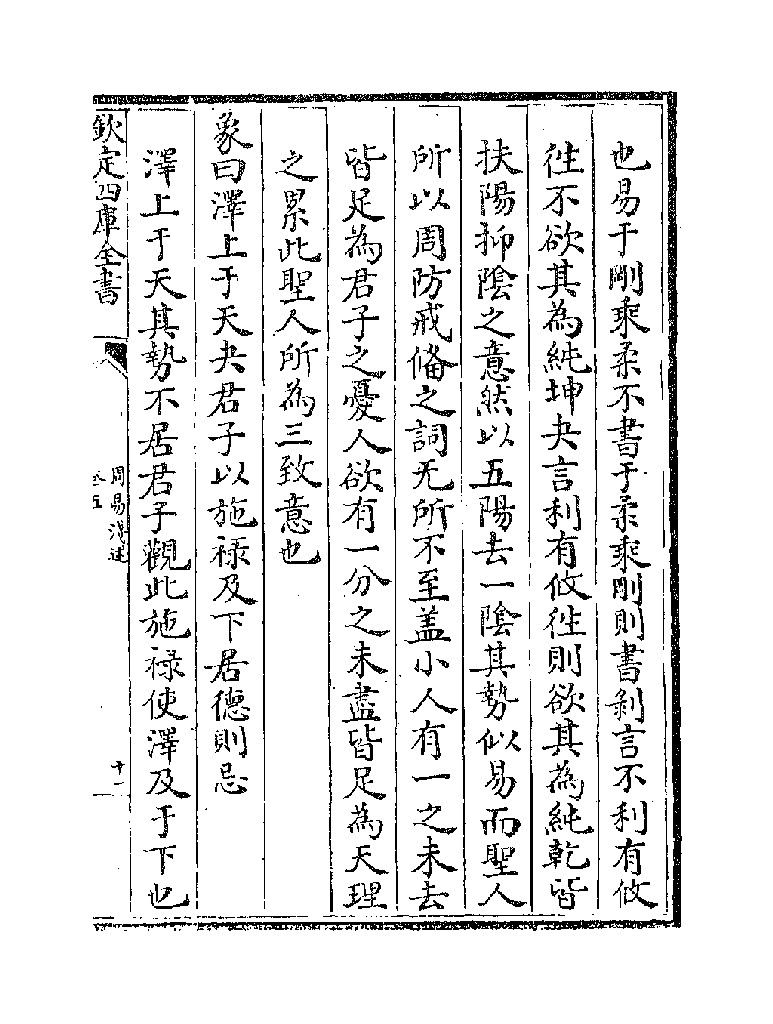 也易于剛乘柔不書于柔乘剛則書剝言不利有攸
徃不欲其為純坤夬言利有攸徃則欲其為純乾皆
扶陽抑陰之意然以五陽去一陰其勢似易而聖人
所以周防戒備之詞无所不至盖小人有一之未去
皆足為君子之憂人欲有一分之未盡皆足為天理
之累此聖人所為三致意也
象曰澤上于天夬君子以施禄及下居德則忌
澤上于天其勢不居君子觀此施禄使澤及于下也
欽定四庫全書
周易淺述
卷五
十一